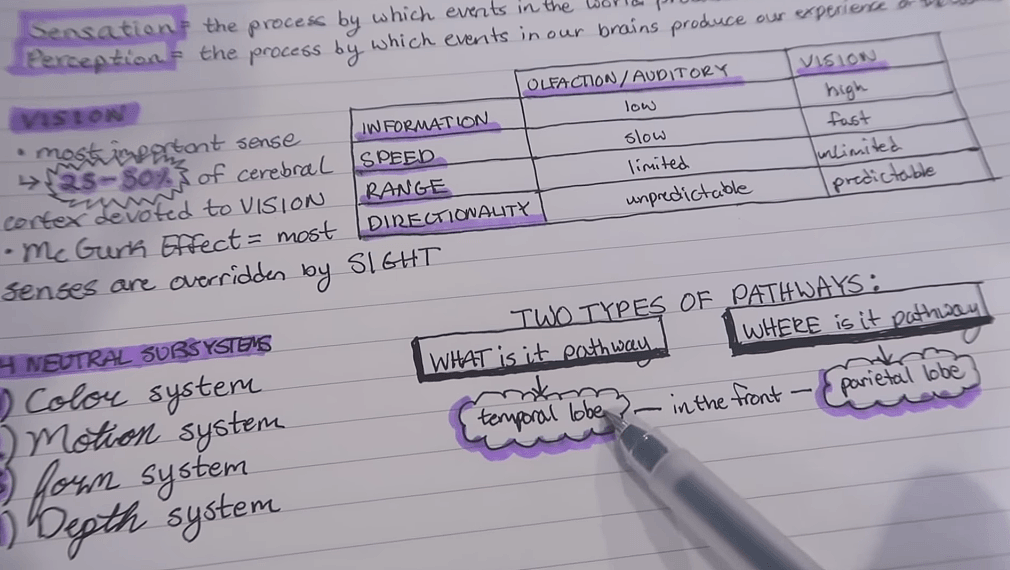 Sensation = the process by which events in the world
Perception = the process by which events in our brains produce our experience
VISION
• most important sense
↳ {25-50%} of cerebral
cortex devoted to VISION
• McGurk Effect = most
senses are overridden by SIGHT
OLFACTION/AUDITORY VISION
INFORMATION low high
SPEED slow fast
RANGE limited unlimited
DIRECTIONALITY unpredictable predictable
TWO TYPES OF PATHWAYS:
WHAT is it pathway WHERE is it pathway
temporal lobe — in the front — parietal lobe
4 NEUTRAL SUBSYSTEMS
) Color system
) Motion system
) form system
) Depth system